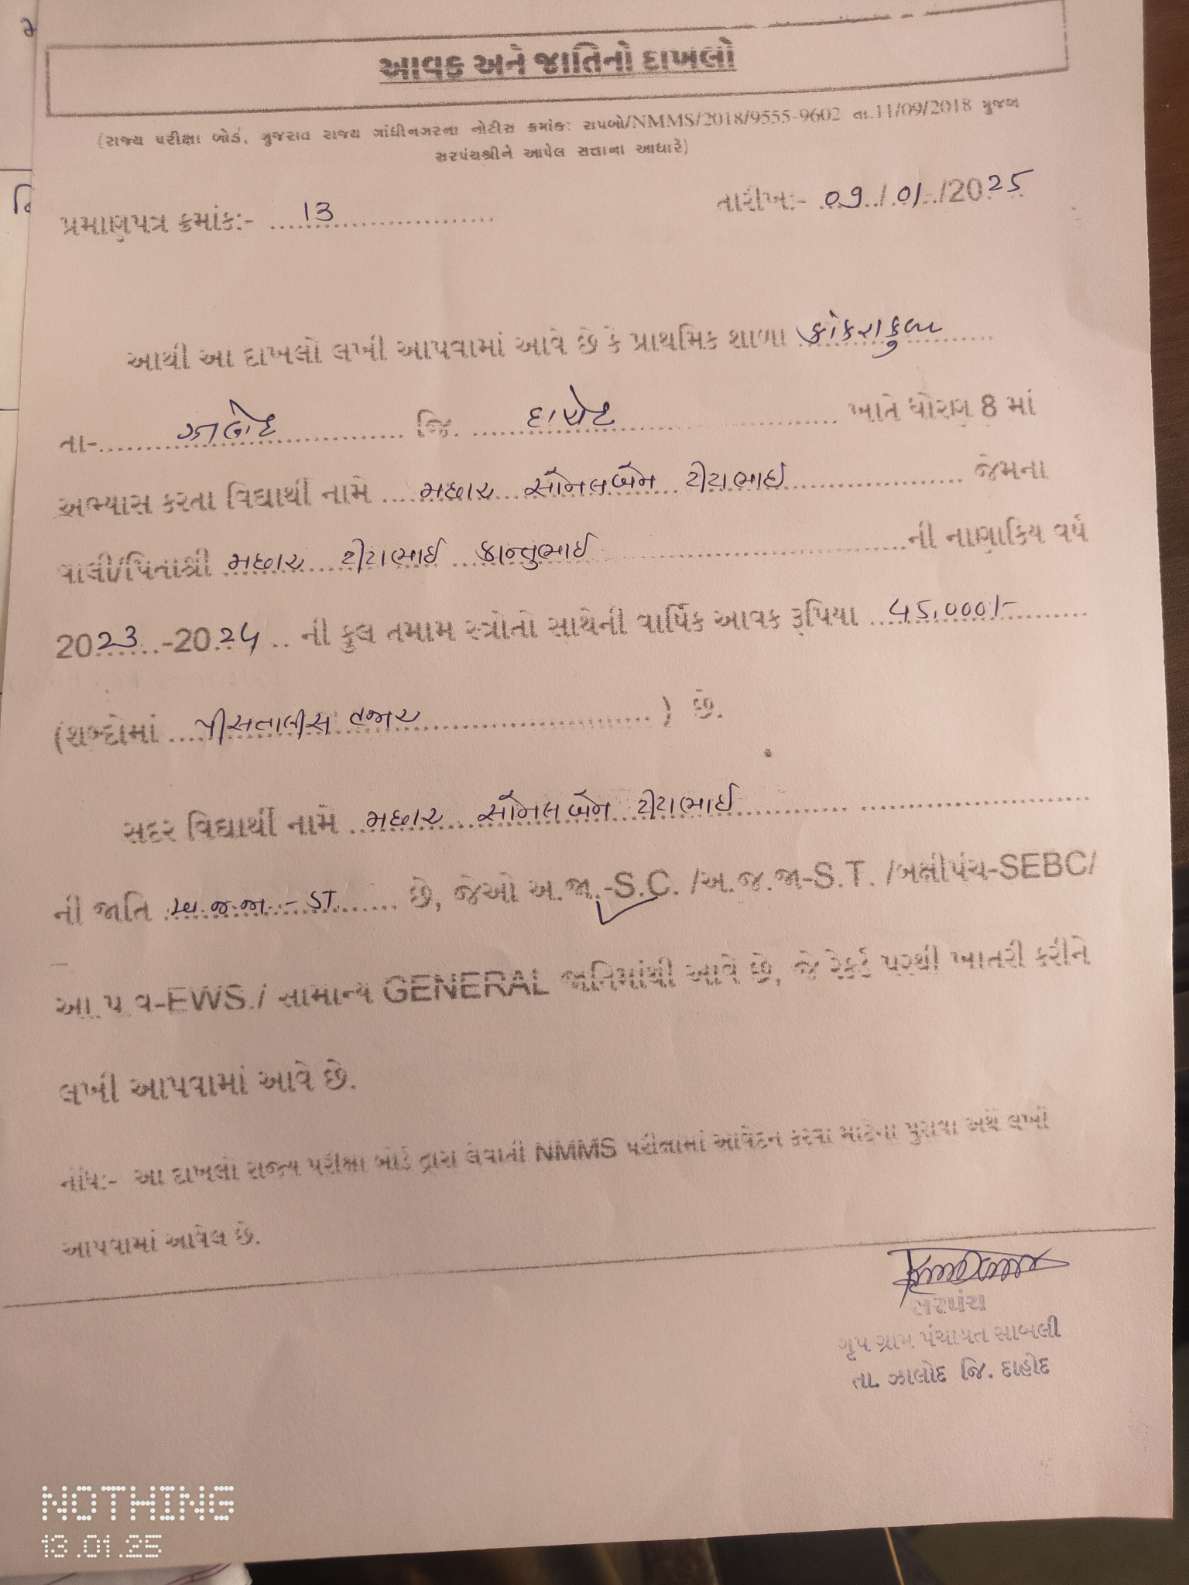 આવક અને જાતિનો દાખલો
(રાજ્ય પરીક્ષા બોર્ડ, ગુજરાત રાજ્ય ગાંધીનગરના નોટીસ ક્રમાંક: રાપબો/NMMS/2018/9555-9602 તા.11/09/2018 મુજબ
સરપંચશ્રીને આપેલ સત્તાના આધારે)
પ્રમાણપત્ર ક્રમાંક:- 13 તારીખ:- 09/01/2025
આથી આ દાખલો લખી આપવામાં આવે છે કે પ્રાથમિક શાળા
તા- ઝાલોદ જિ. દાહોદ ખાતે ધોરણ 8 માં
અભ્યાસ કરતા વિદ્યાર્થી નામે મછાર સોનલબેન ટીટાભાઈ જેમના
વાલી/પિતાશ્રી મછાર ટીટાભાઈ કાનુભાઈ ની નાણાકિય વર્ષ
2023-2024 ની કુલ તમામ સ્ત્રોતો સાથેની વાર્ષિક આવક રૂપિયા 45,000/-
(શબ્દોમાં પીસતાલીસ હજાર ) છે.
સદર વિદ્યાર્થી નામે મછાર સોનલબેન ટીટાભાઈ
ની જાતિ અ.જ.જા - ST છે, જેઓ અ.જા.-S.C. /અ.જ.જા-S.T. /બક્ષીપંચ-SEBC/
આ.પ.વ-EWS./ સામાન્ય GENERAL જાતિમાંથી આવે છે, જે રેકર્ડ પરથી ખાતરી કરીને
લખી આપવામાં આવે છે.
નોંધ:- આ દાખલો રાજ્ય પરીક્ષા બોર્ડ દ્વારા લેવાતી NMMS પરીક્ષામાં આવેદન કરવા માટેના પુરાવા અર્થે લખી
આપવામાં આવેલ છે.
સરપંચ
ગૃપ ગ્રામ પંચાયત સાબલી
તા. ઝાલોદ જિ. દાહોદ
NOTHING
13.01.25